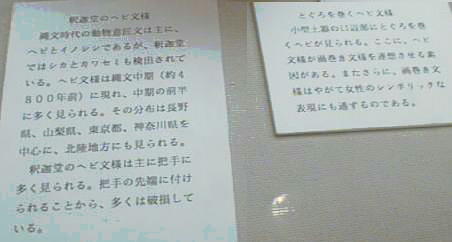 釈迦堂のヘビ文様
縄文時代の動物意匠文は主に、
ヘビとイノシシであるが、釈迦堂
ではシカとカワセミも検出されて
いる。ヘビ文様は縄文中期（約４
８００年前）に現れ、中期の前半
に多く見られる。その分布は長野
県、山梨県、東京都、神奈川県を
中心に、北陸地方にも見られる。
釈迦堂のヘビ文様は主に把手に
多く見られる。把手の先端に付け
られることから、多くは破損して
いる。
とぐろを巻くヘビ文様
小型土器の口辺部にとぐろを巻
くヘビが見られる。ここに、ヘビ
文様が渦巻き文様を連想させる素
因がある。またさらに、渦巻き文
様はやがて女性のシンボリックな
表現にも通ずるのである。